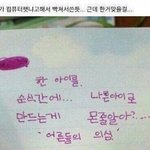 가 컴퓨터켯냐고해서 빡쳐서쓴듯... 근데 한거맞을걸...
한 아이를,
순식간에... 나쁜아이로
만드는게 몬줄알아?....
"어른들의 의심"